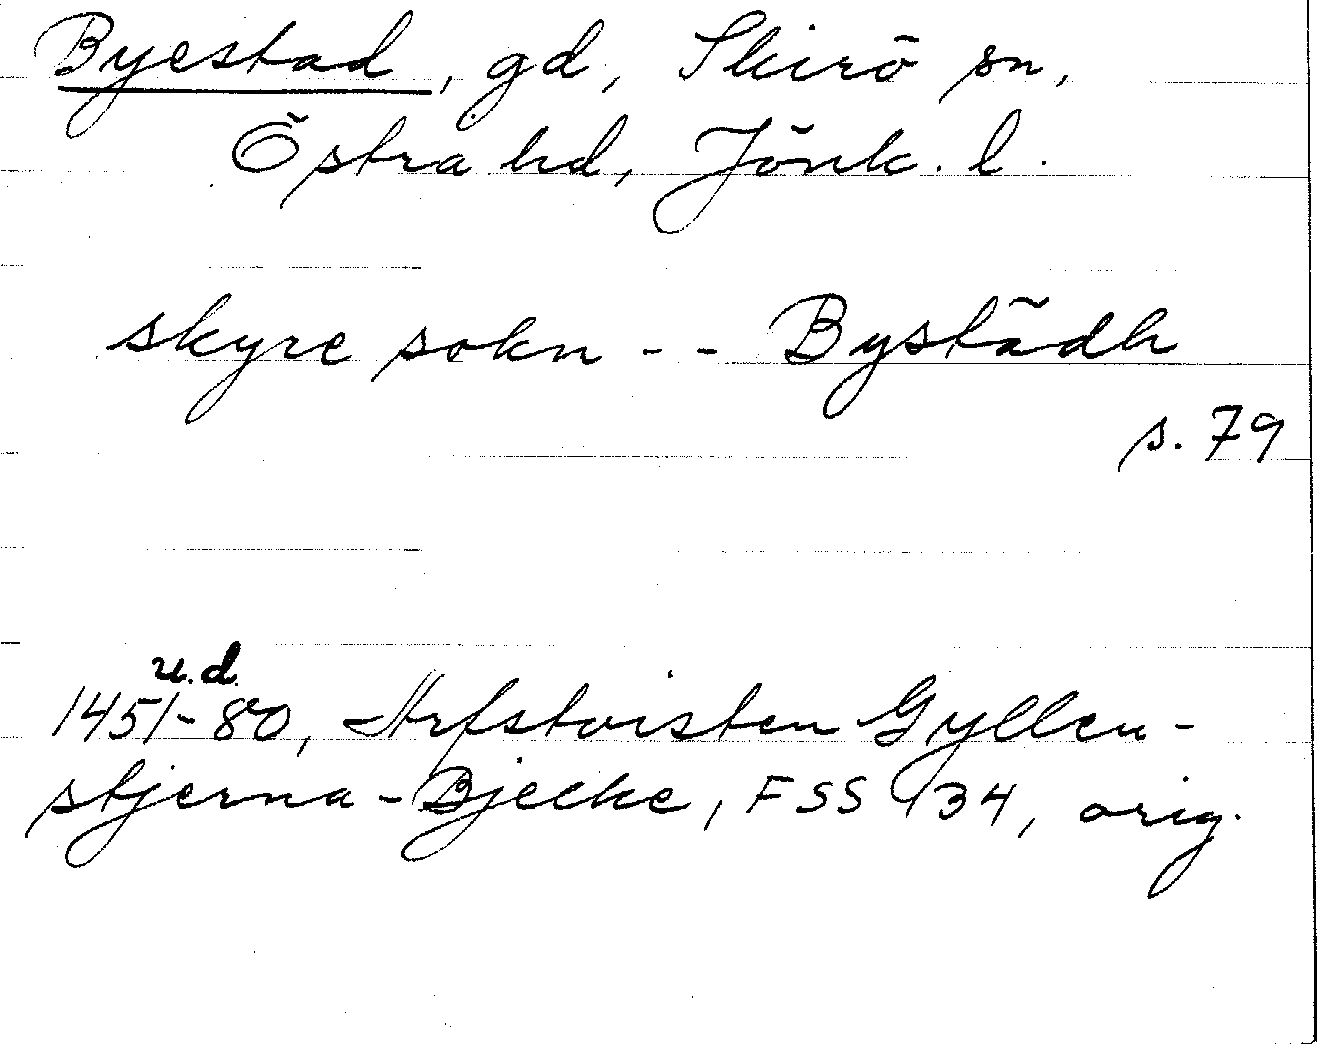 Byestad, gd, Skirö sn,
Östra hd, Jönk. l.
skyre sokn - - Bystãdh
s. 79
u.d.
1451-80, Arfstvisten Gyllen-
stjerna-Bjelke, FSS 934, orig.